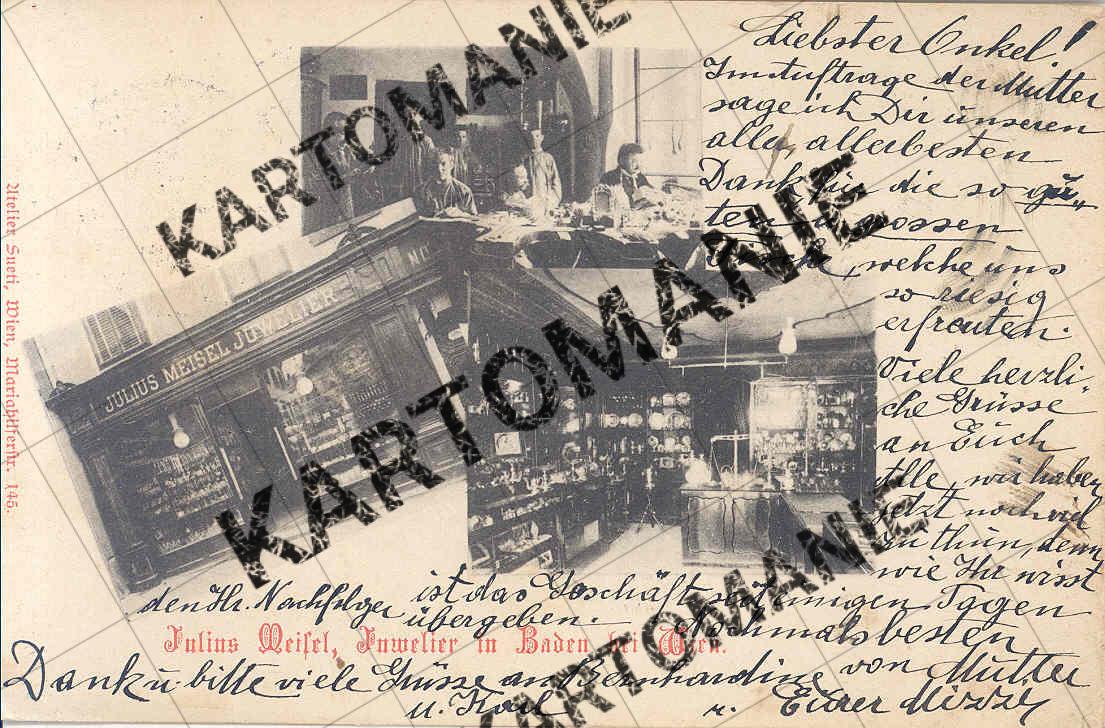 Liebster Onkel!
Im Auftrage der Mutter
sage ich Dir unseren
aller, allerbesten
Dank für die so gu„
ten grossen
welche uns
so riesig
erfreuten.
Viele herzli„
che Grüsse
an Euch
Alle, wir haben
jetzt noch viel
zu thun, denn
wie Ihr wisst
ist das Geschäft seit einigen Tagen
den Hr. Nachfolger übergeben. Nochmals besten
Dank u. bitte viele Grüsse an Bernhardine von Mutter
u. Karl u. Eurer Mizzi
JULIUS MEISEL JUWELIER
Julius Meisel, Juwelier in Baden bei Wien.
Atelier Sueti, Wien, Mariahilferstr. 145.
KARTOMANIE
KARTOMANIE
KARTOMANIE
KARTOMANIE